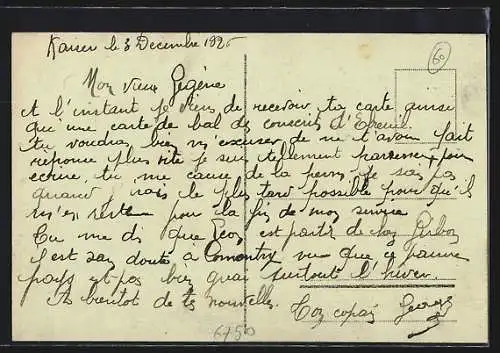 le 3 Decembre 192
60
Mon vieux Gegène
A l'instant je viens de recevoir ta carte ainsi
que une carte de bal des conscrits d'Ereuil.
tu voudras bien m'excuser de ne t'avoir fait
reponse plus vite je suis tellement paresseux pour
ecrire tu me cause de la perm je sais pas
quand mais le plus tard possible pour qu'il
m'en reste pour la fin de mon service
Tu me dis que Leon est partir de chez
il est sans doute à Comentry vu que ce pauvre
pays est pas bien gai surtout l'hiver.
A bientot de tes nouvelles.
Ton copain Georges
6750